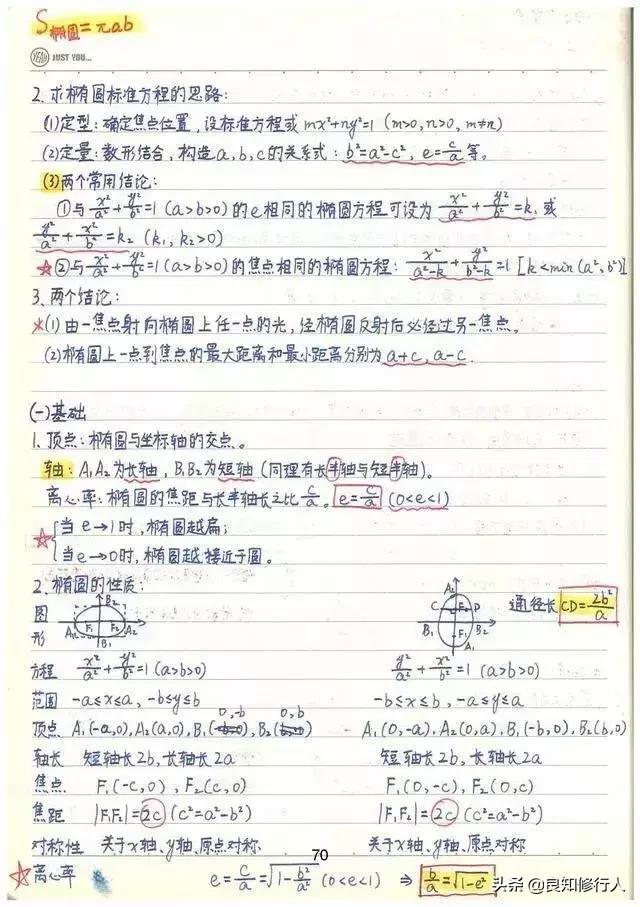 S椭圆=πab
YEAH JUST YOU...
2. 求椭圆标准方程的思路:
(1)定型:确定焦点位置,设标准方程或 mx²+ny²=1 (m>0,n>0,m≠n)
(2)定量:数形结合,构造a,b,c的关系式:b²=a²-c²,e=c/a等。
(3)两个常用结论:
①与x²/a²+y²/b²=1(a>b>0)的e相同的椭圆方程可设为x²/a²+y²/b²=k₁或
y²/a²+x²/b²=k₂(k₁,k₂>0)
☆②与x²/a²+y²/b²=1(a>b>0)的焦点相同的椭圆方程:x²/(a²-k)+y²/(b²-k)=1[k<min(a²,b²)]
3. 两个结论:
☆(1)由一焦点射向椭圆上任一点的光,经椭圆反射后必经过另一焦点。
(2)椭圆上一点到焦点的最大距离和最小距离分别为a+c,a-c.
(一)基础
1. 顶点:椭圆与坐标轴的交点。
轴:A₁A₂为长轴,B₁B₂为短轴(同理有长半轴与短半轴)。
离心率:椭圆的焦距与长半轴长之比c/a。e=c/a(0<e<1)
☆{当e→1时,椭圆越扁;
当e→0时,椭圆越接近于圆。
2. 椭圆的性质:
图形 A₁ F₁ F₂ A₂ B₂ B₁ A₂ C F₂ D B₁ B₂ F₁ A₁ 通径长CD=2b²/a
方程 x²/a²+y²/b²=1(a>b>0) y²/a²+x²/b²=1(a>b>0)
范围 -a≤x≤a,-b≤y≤b -b≤x≤b,-a≤y≤a
0,-b 0,b
顶点 A₁(-a,0),A₂(a,0),B₁(-b,0),B₂(b,0) A₁(0,-a),A₂(0,a),B₁(-b,0),B₂(b,0)
轴长 短轴长2b,长轴长2a 短轴长2b,长轴长2a
焦点 F₁(-c,0),F₂(c,0) F₁(0,-c),F₂(0,c)
焦距 |F₁F₂|=2c(c²=a²-b²) |F₁F₂|=2c(c²=a²-b²)
对称性 关于x轴、y轴、原点对称. 关于x轴、y轴、原点对称
70
☆离心率 e=c/a=√(1-b²/a²)(0<e<1)⇒b/a=√(1-e²)
头条@良知修行人